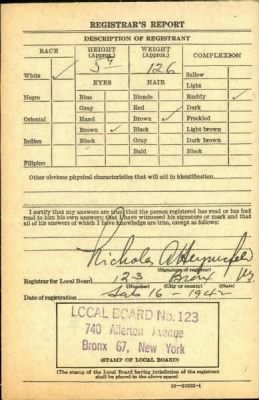 REGISTRAR'S REPORT
DESCRIPTION OF REGISTRANT
RACE HEIGHT (Approx.) WEIGHT (Approx.) COMPLEXION
White ✓ 5' 126 Sallow
EYES HAIR Light
Negro Blue Blonde Ruddy ✓
Gray Red Dark
Oriental Hazel Brown ✓ Freckled
Brown ✓ Black Light brown
Indian Black Gray Dark brown
Bald Black
Filipino
Other obvious physical characteristics that will aid in identification
I certify that my answers are true; that the person registered has read or has had
read to him his own answers; that I have witnessed his signature or mark and that
all of his answers of which I have knowledge are true, except as follows:
Nicholas
(Signature of registrar)
Registrar for Local Board 123 Bronx NY
(Number) (City or county) (State)
Date of registration Feb 16 - 1942
LOCAL BOARD No. 123
740 Allerton Avenue
Bronx 67, New York
(STAMP OF LOCAL BOARD)
(The stamp of the Local Board having jurisdiction of the registrant
shall be placed in the above space)